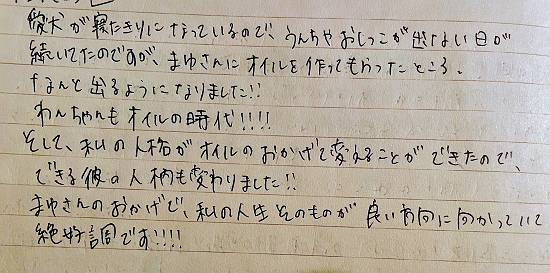 愛犬が寝たきりになっているので、うんちやおしっこが出ない日が
続いてたのですが、まゆさんにオイルを作ってもらったところ、
なんと出るようになりました!!
わんちゃんもオイルの時代!!!!
そして、私の人格がオイルのおかげで変えることができたので、
できる彼の人柄も変わりました!!
まゆさんのおかげで、私の人生そのものが良い方向に向かっていて
絶好調です!!!!